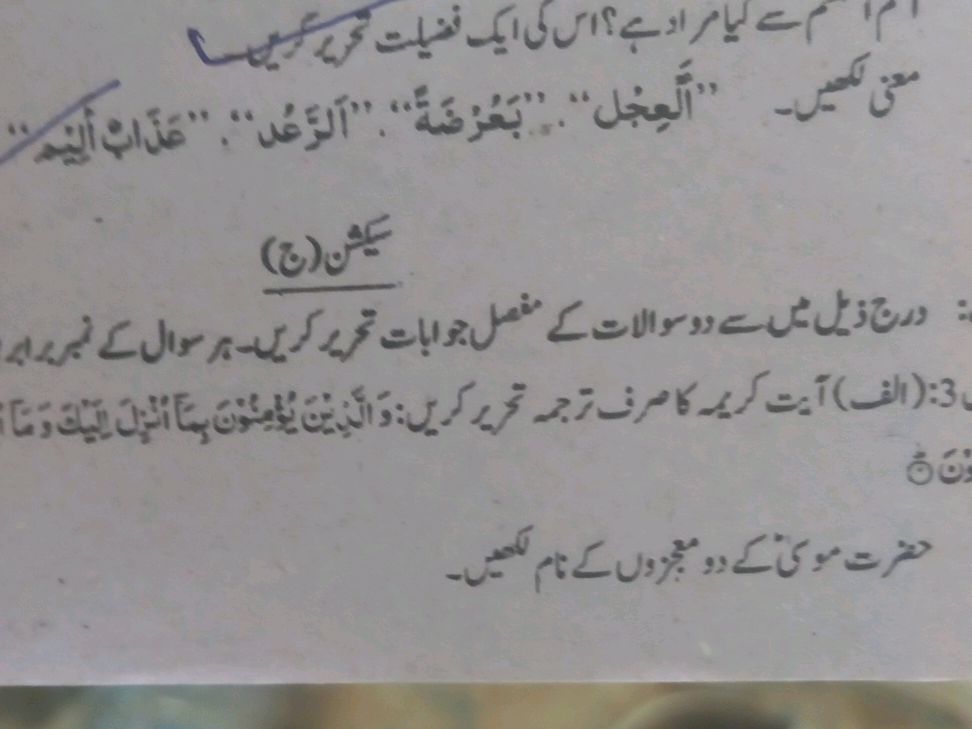 سے کیا مراد ہے؟ اس کی ایک فضیلت تحریر کریں۔
معنی لکھیں۔ ”اَلْعِجْل“. ”بَعُوْضَةً“. ”اَلرَّعْد“. ”عَذَابٌ أَلِيْم“
سیکشن (ج)
درج ذیل میں سے دو سوالات کے مفصل جوابات تحریر کریں۔ ہر سوال کے نمبر برابر
3: (الف) آیت کریمہ کا صرف ترجمہ تحریر کریں: وَالَّذِيْنَ يُؤْمِنُوْنَ بِمَآ اُنْزِلَ اِلَيْكَ وَمَآ
حضرت موسیٰؑ کے دو معجزوں کے نام لکھیں۔